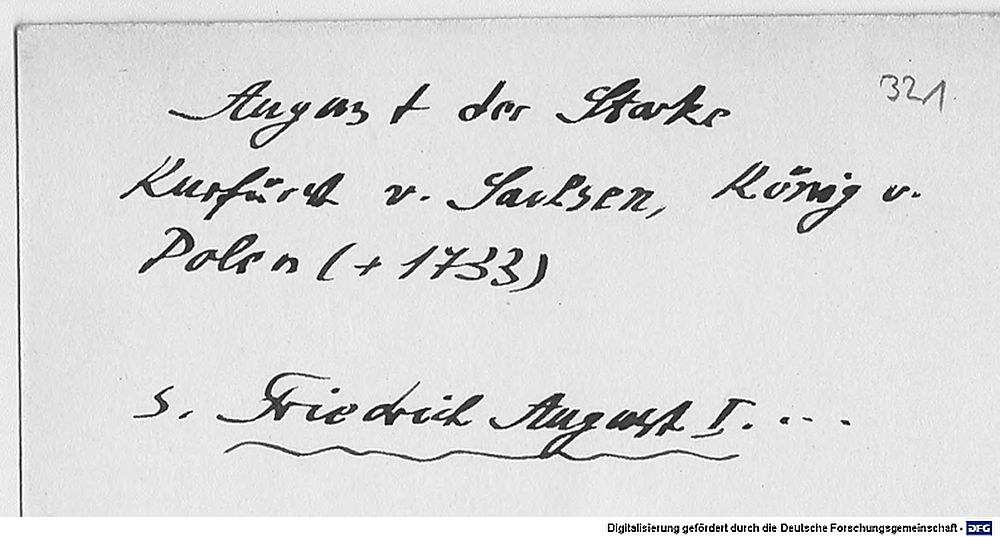 321
August der Starke
Kurfürst v. Sachsen, König v.
Polen (+ 1733)
s. Friedrich August I. ...
Digitalisierung gefördert durch die Deutsche Forschungsgemeinschaft - DFG